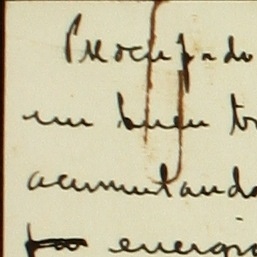 Preocupado
un buen tr
acumulando
energia